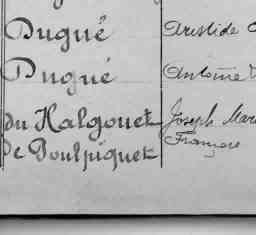 Dugué Aristide
Dugué Antoine
du Halgouet Joseph Mari
de Poulpiquet François